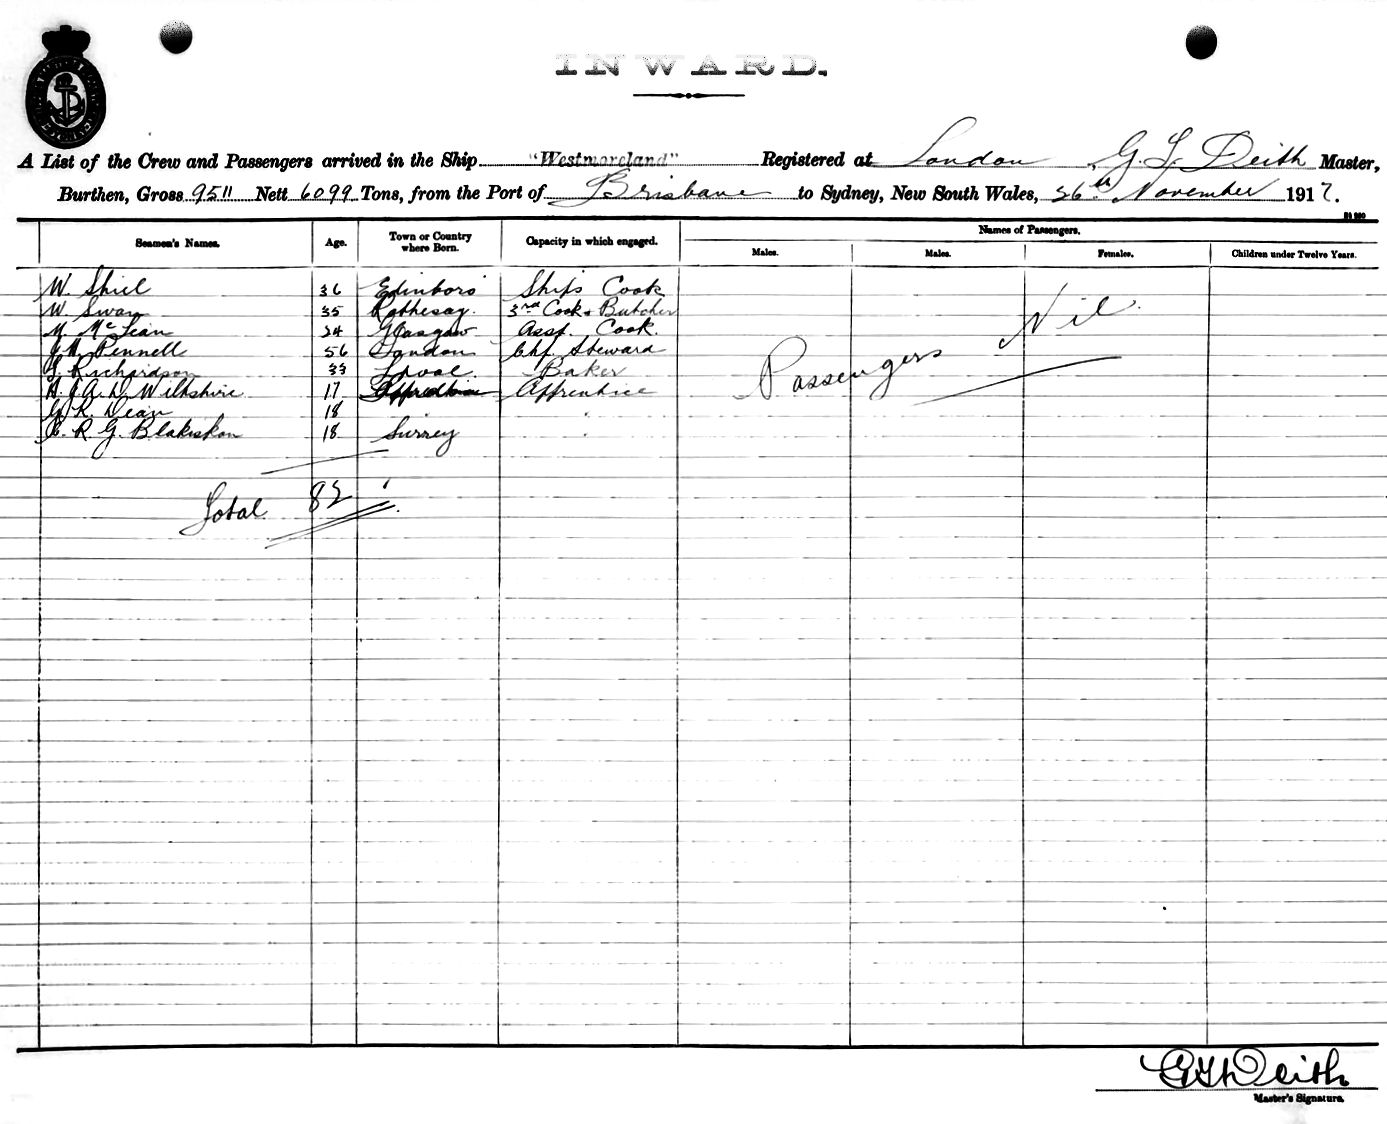 INWARD.
A List of the Crew and Passengers arrived in the Ship "Westmoreland" Registered at London G. L. Deith Master,
Burthen, Gross 9511 Nett 6099 Tons, from the Port of Brisbane to Sydney, New South Wales, 26th November 1917.
Seamen's Names. Age. Town or Country where Born. Capacity in which engaged. Names of Passengers.
Males. Males. Females. Children under Twelve Years.
W. Shiel 36 Edinboro' Ship's Cook
W. Swan 35 Rothesay. 3rd Cook & Butcher
M. McLean 24 Glasgow Asst. Cook.
J. W. Pennell 56 London Chf. Steward
Richardson 33 L'pool. Baker
H. J. A. D. Wiltshire 17 Apprentice
G. R. Dean 18 "
C. R. G. Blakiston 18 Surrey "
Passengers Nil
Total 82
G L Deith
Master's Signature.